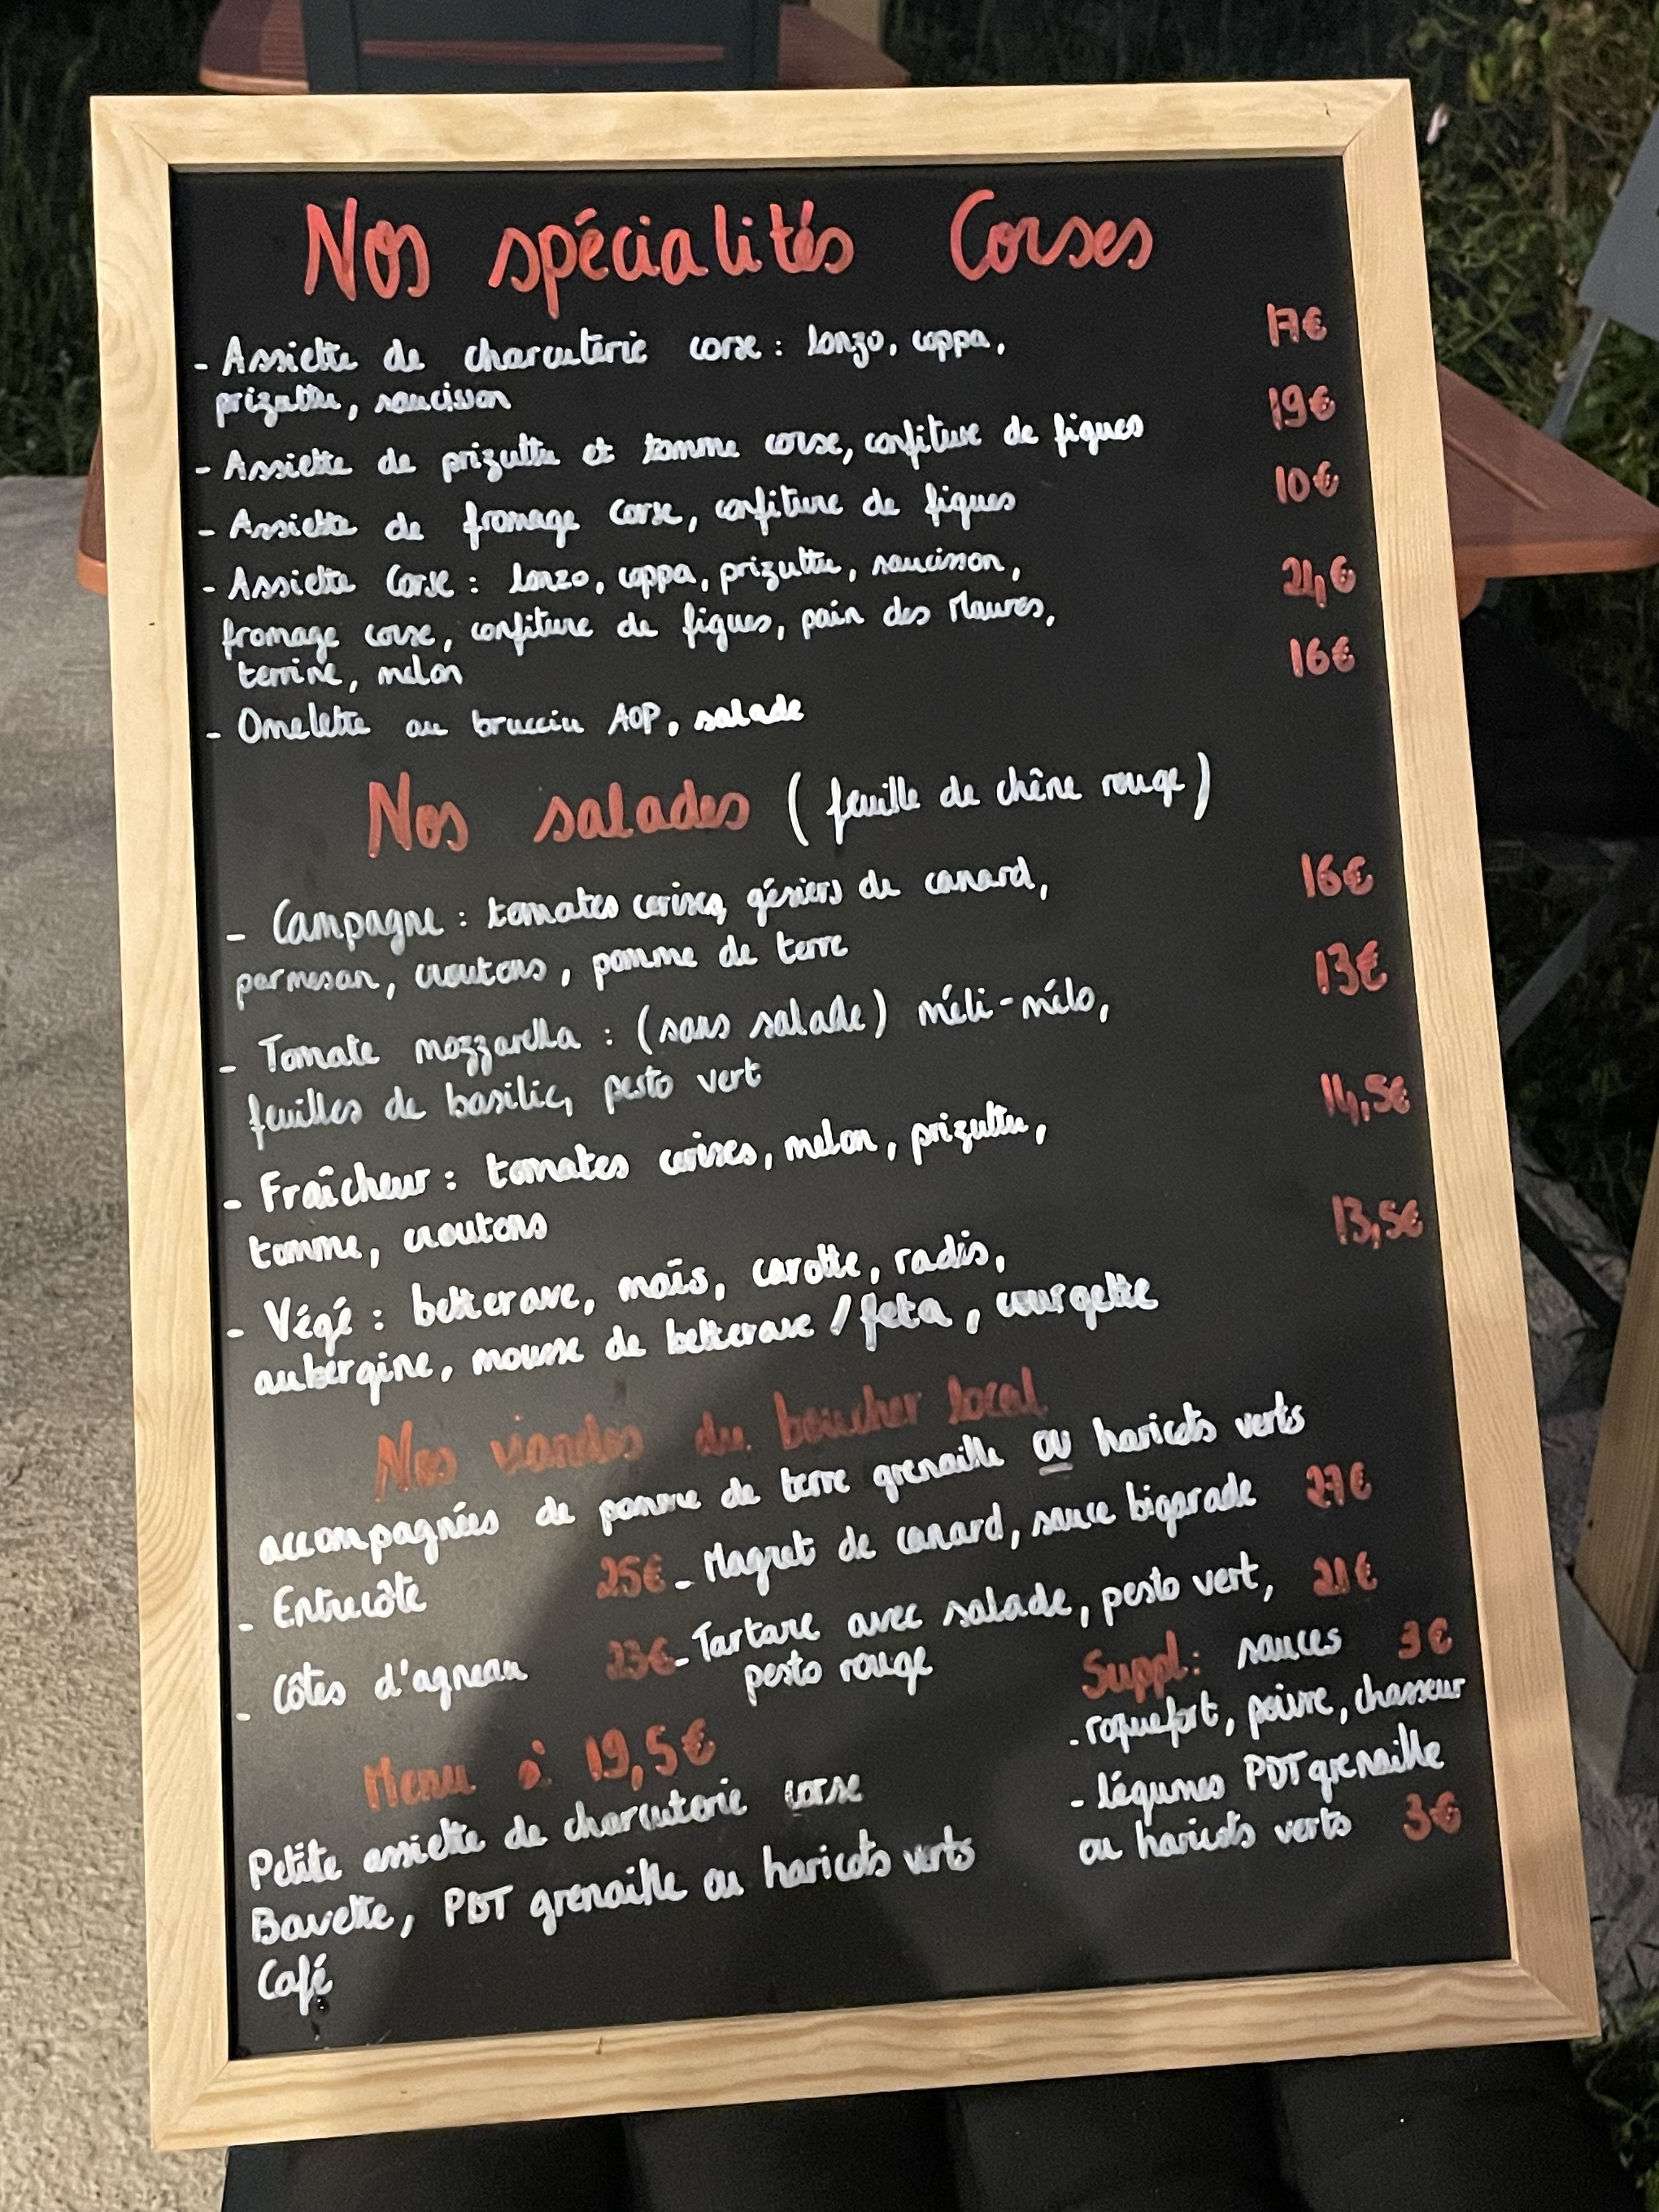 Nos spécialités Corses
- Assiette de charcuterie corse : lonzo, coppa, 17€
prizuttu, saucisson
- Assiette de prizuttu et tomme corse, confiture de figues 19€
- Assiette de fromage corse, confiture de figues 10€
- Assiette Corse : lonzo, coppa, prizuttu, saucisson,
fromage corse, confiture de figues, pain des Maures,
terrine, melon
- Omelette au brucciu AOP, salade 16€
Nos salades (feuille de chêne rouge)
- Campagne : tomates cerises, gésiers de canard, 16€
parmesan, croutons, pomme de terre
- Tomate mozzarella : (sans salade) méli-mélo, 13€
feuilles de basilic, pesto vert
- Fraîcheur : tomates cerises, melon, prizuttu, 14,5€
tomme, croutons
- Végé : betterave, maïs, carotte, radis, 13,5€
aubergine, mousse de betterave / feta, courgette
Nos viandes du boucher local
accompagnées de pomme de terre grenaille ou haricots verts
- Entrecôte 25€ - Magret de canard, sauce bigarade 27€
- Côtes d'agneau 23€ - Tartare avec salade, pesto vert, 21€
pesto rouge
Menu à 19,5€
Petite assiette de charcuterie corse
Bavette, PDT grenaille ou haricots verts
Café
Suppl: sauces 3€
- roquefort, poivre, chasseur
- légumes PDT grenaille
ou haricots verts 3€